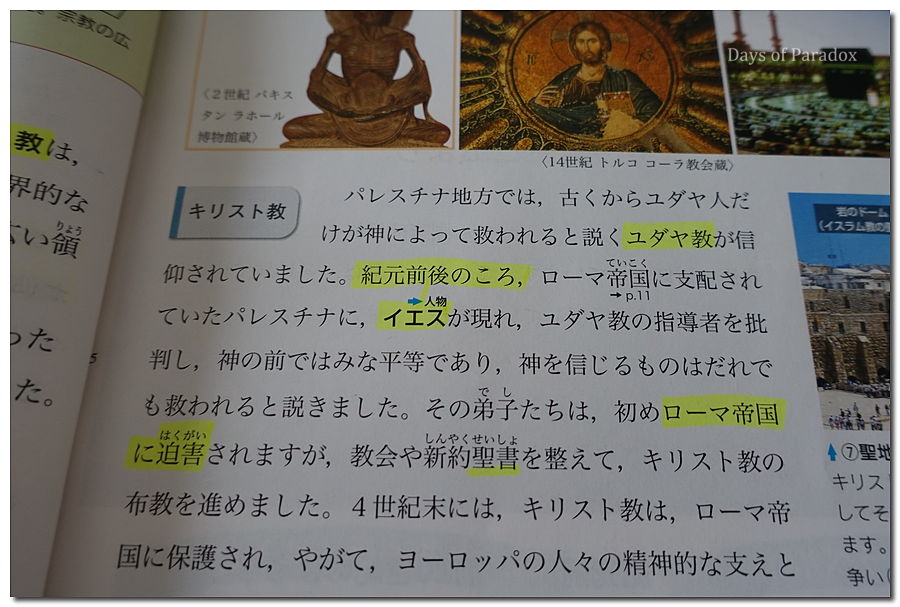 宗教の広
教は，
界的な
い領
りょう
った
た。
5
〈2世紀 パキス
タン ラホール
博物館蔵〉
Days of Paradox
〈14世紀 トルコ コーラ教会蔵〉
キリスト教
パレスチナ地方では，古くからユダヤ人だ
けが神によって救われると説くユダヤ教が信
ていこく
仰されていました。紀元前後のころ，ローマ帝国に支配され
→p.11
➡人物
ていたパレスチナに，イエスが現れ，ユダヤ教の指導者を批
判し，神の前ではみな平等であり，神を信じるものはだれで
でし
も救われると説きました。その弟子たちは，初めローマ帝国
はくがい しんやくせいしょ
に迫害されますが，教会や新約聖書を整えて，キリスト教の
布教を進めました。４世紀末には，キリスト教は，ローマ帝
国に保護され，やがて，ヨーロッパの人々の精神的な支えと
岩のドーム
(イスラム教の
⑦聖地
キリス
してそ
ます。
争い